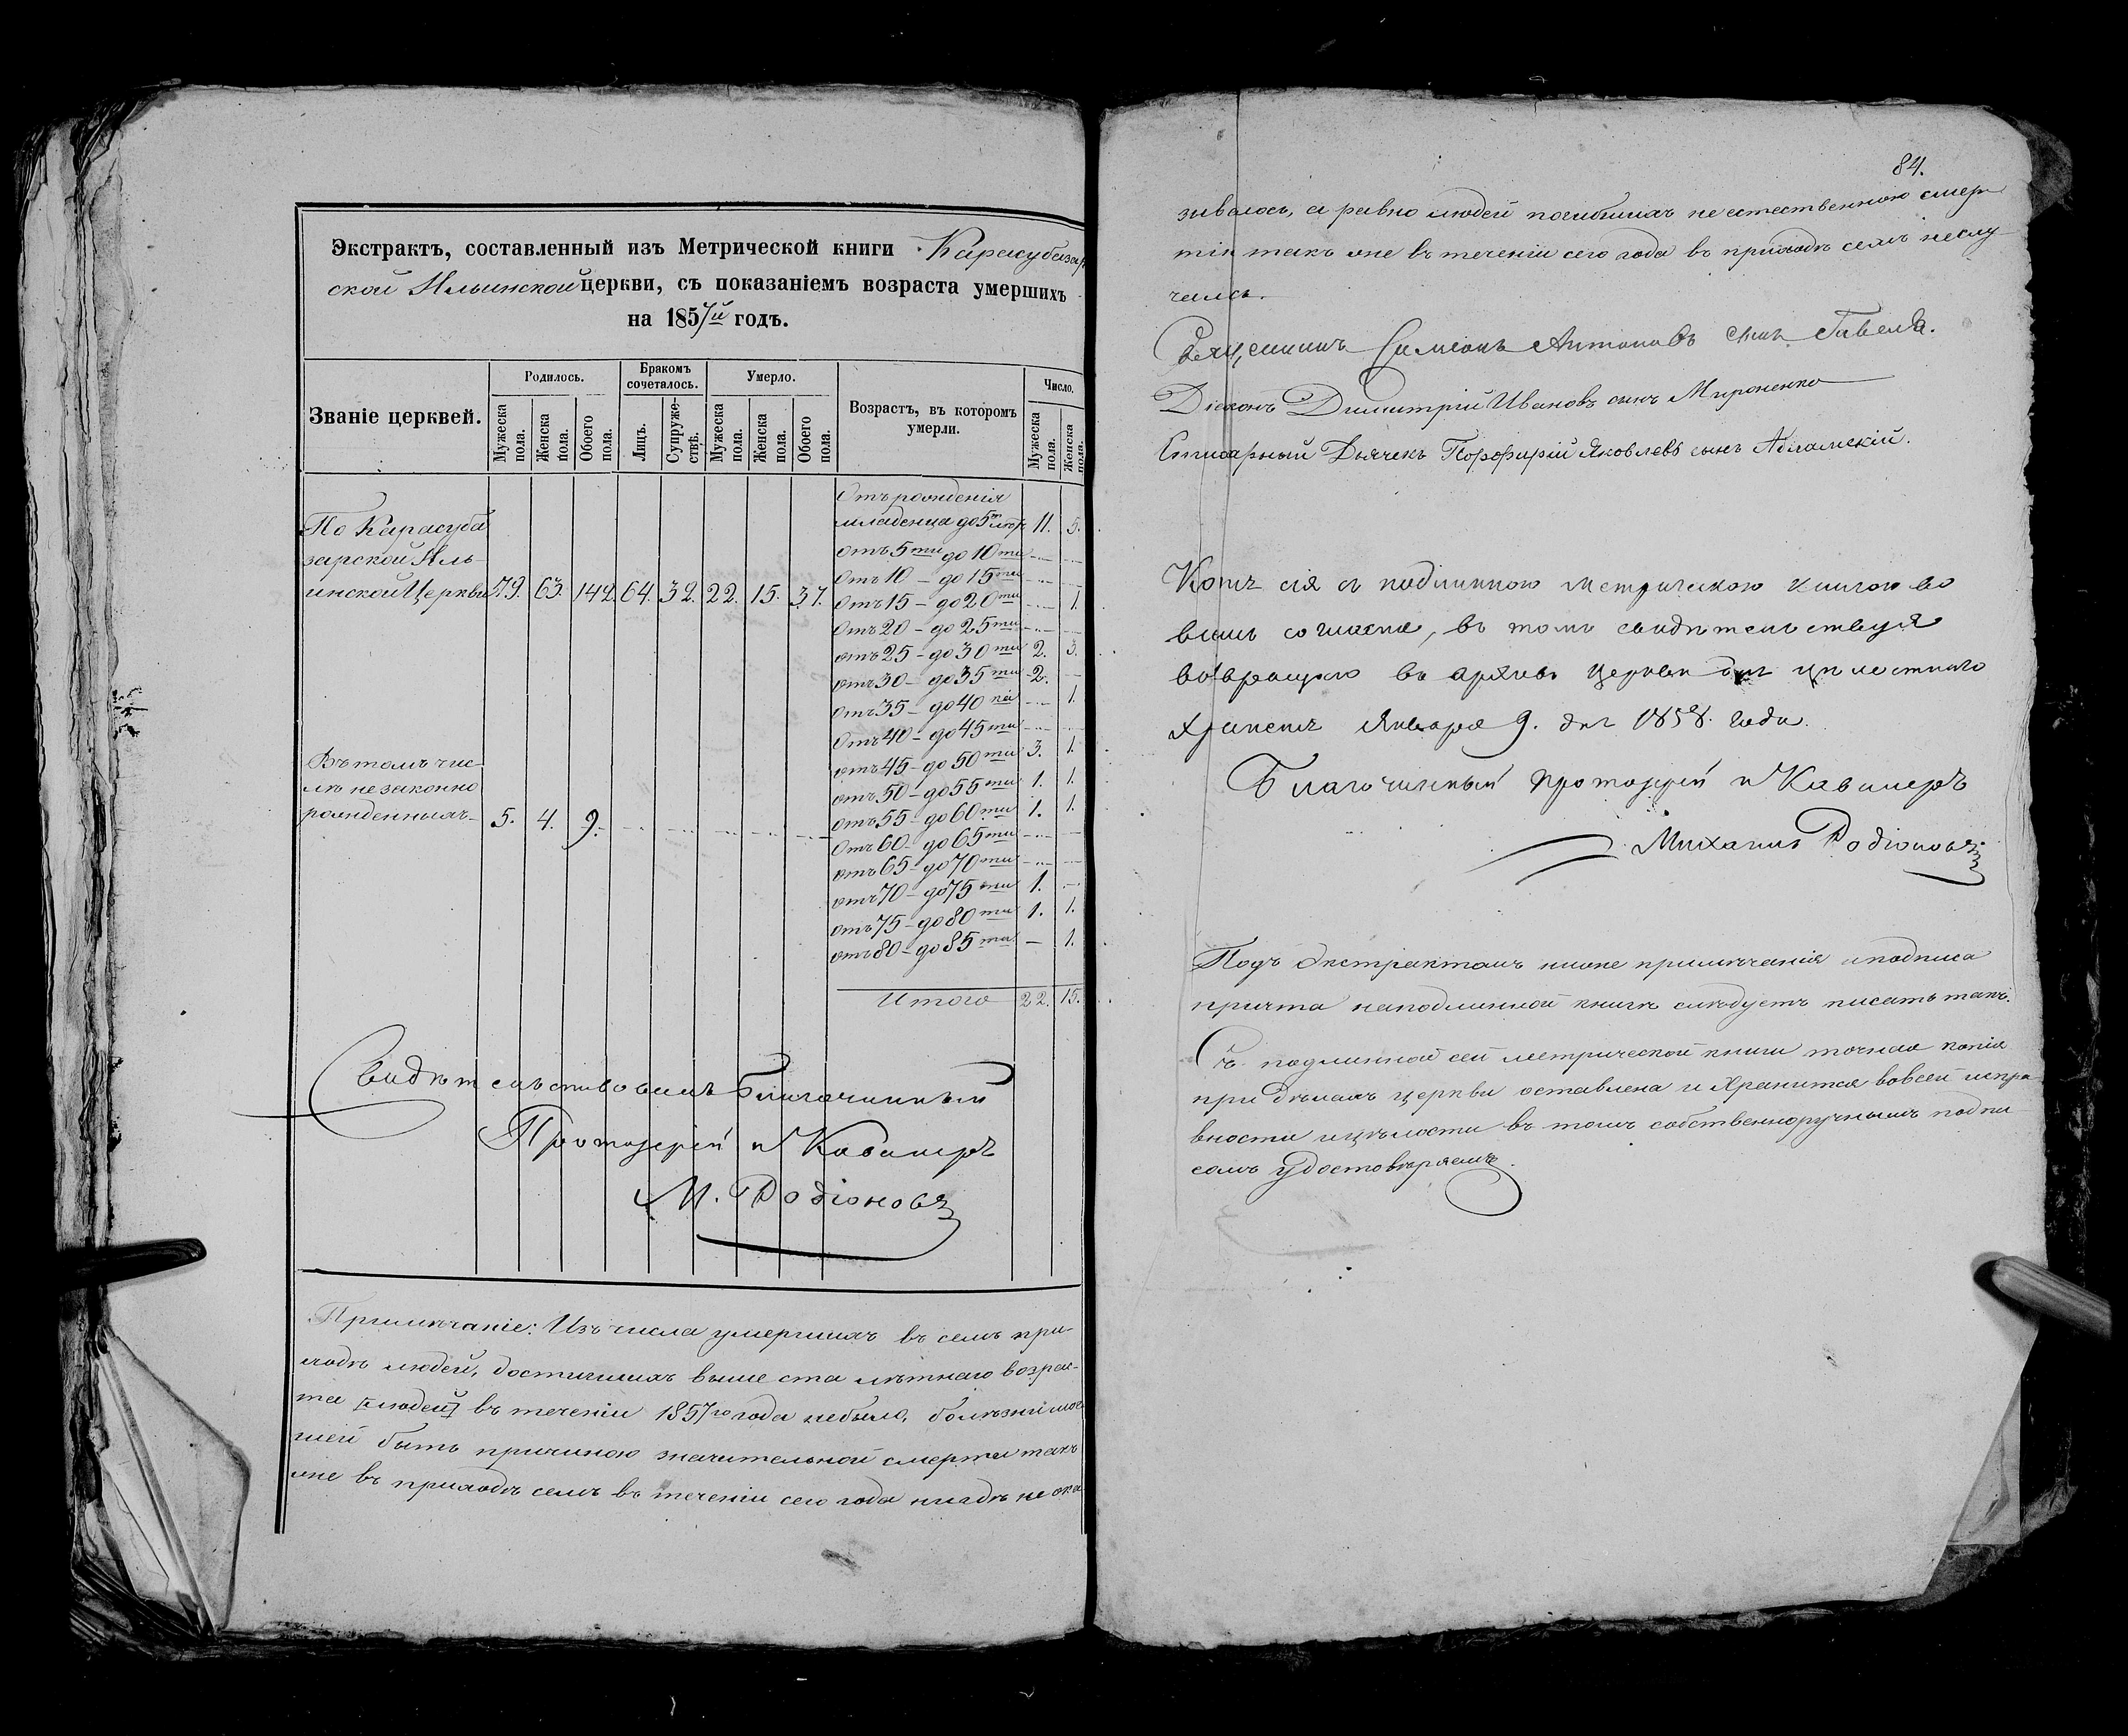 Экстрактъ, составленный изъ Метрической книги Карасубазар
ской Ильинской церкви, съ показаніемъ возраста умершихъ
на 1857й годъ.
Званіе церквей.
Родилось.
Бракомъ сочеталось.
Умерло.
Возрастъ, въ которомъ умерли.
Число.
Мужеска пола.
Женска пола.
Обоего пола.
Лицъ.
Супруже-ствъ.
Мужеска пола.
Женска пола.
Обоего пола.
Мужеска пола.
Женска пола.
По Карасуба
зарской Иль-
инской Церкви 79. 63. 142. 64. 32. 22. 15. 37.
Въ томъ чис-
лѣ незаконно
рожденныхъ 5. 4. 9.
Отъ рожденія
младенца до 5т лѣтъ 11. 5.
отъ 5ти до 10ти
Отъ 10 - до 15ти
Отъ 15 - до 20ти 1.
Отъ 20 - до 25ти
отъ 25 - до 30ти 2. 3.
отъ 30 - до 35ти 2.
Отъ 35 - до 40 1.
Отъ 40 - до 45ти
отъ 45 - до 50ти 3. 1.
отъ 50 - до 55ти 1. 1.
отъ 55 - до 60ти 1. 1.
Отъ 60 - до 65ти
отъ 65 - до 70ти
отъ 70 - до 75ти 1.
отъ 75 - до 80ти 1. 1.
отъ 80 - до 85ти 1.
Итого 22. 15.
Свидѣтельствовалъ Благочинный
Протоіерей и Кавалеръ
М. Родіоновъ
Примѣчаніе: Изъ числа умершихъ въ семъ при-
ходѣ людей, достигшихъ выше ста лѣтняго возрас-
та [людей] въ теченіи 1857го года небыло, болѣзни мог
шей быть причиною значительной смерти такъ
же въ приходѣ семъ въ теченіи сего года нигдѣ не ока
84.
зывалось, а равно людей погибшихъ неестественною смер
тію также въ теченіи сего года въ приходѣ семъ неслу
чалось.
Священникъ Симеонъ Антоновъ сынъ
Діаконъ Димитрій Ивановъ сынъ Мироненко
Дьячекъ Порфирій Яковлевъ сынъ
Копія сія съ подлинною метрическою книгою во
всемъ согласна, въ томъ свидѣтельствуя
возвращаю въ архивъ церкви для цѣлостнаго
храненія Января 9. дня 1858. года.
Благочинный протоіерей и Кавалеръ
Михаилъ Родіоновъ
Подъ Экстрактомъ ниже примѣчанія и подписа
причта на подлинной книгѣ слѣдуетъ писать такъ.
Съ подлинной сей метрической книги точная копія
при дѣлахъ церкви оставлена и хранится во всей испра
вности и цѣлости въ томъ собственноручнымъ подпи
сомъ удостовѣряемъ.